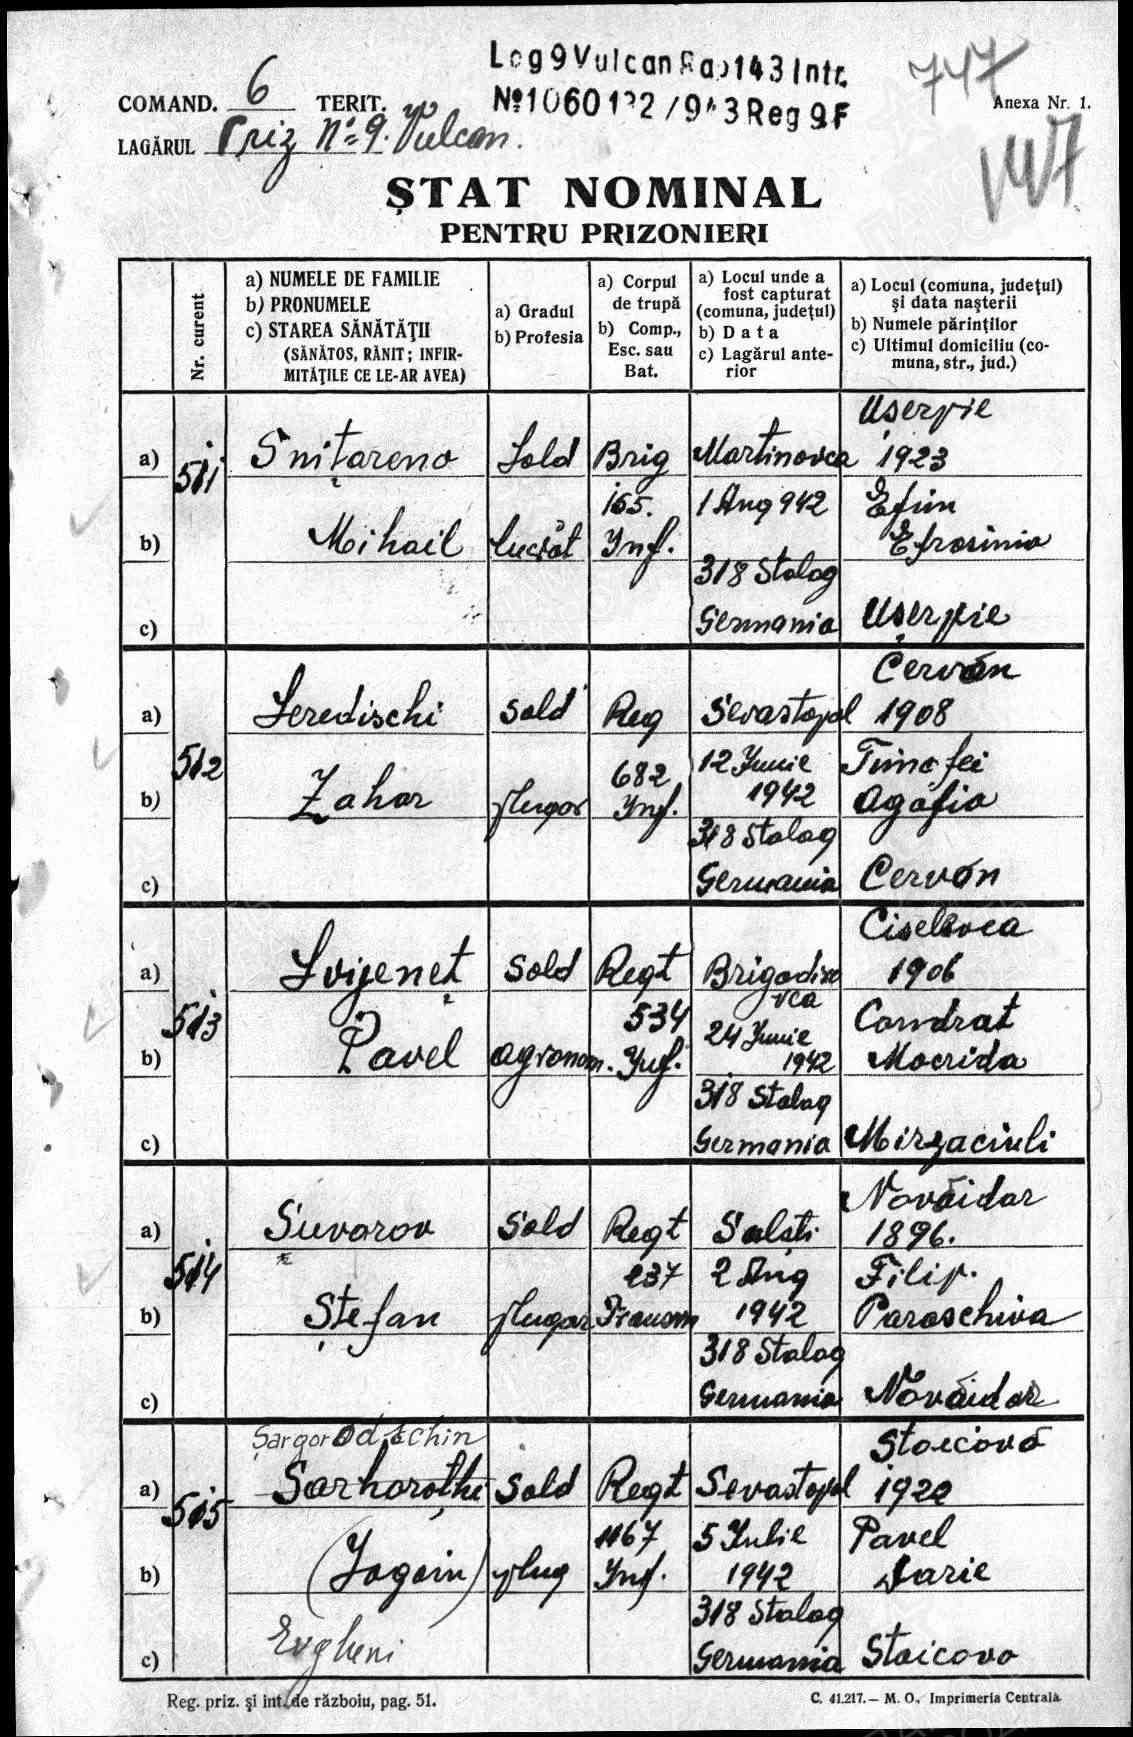 Lag 9 Vulcan Rap 143 Intr.
747
COMAND. 6 TERIT.
Nº 1060122/943 Reg 9F
Anexa Nr. 1.
LAGĂRUL Priz Nº 9. Vulcan.
ȘTAT NOMINAL
PENTRU PRIZONIERI
Nr. curent
a) NUMELE DE FAMILIE
b) PRONUMELE
c) STAREA SĂNĂTĂȚII
(SĂNĂTOS, RĂNIT; INFIR-
MITĂȚILE CE LE-AR AVEA)
a) Gradul
b) Profesia
a) Corpul
de trupă
b) Comp.,
Esc. sau
Bat.
a) Locul unde a
fost capturat
(comuna, județul)
b) Data
c) Lagărul ante-
rior
a) Locul (comuna, județul)
și data nașterii
b) Numele părinților
c) Ultimul domiciliu (co-
muna, str., jud.)
a)
b)
c)
511
Snițareno
Mihail
Sold
lucrăt
Brig
165.
Inf.
Martinovca
1 Aug 942
318 Stalag
Germania
Ușerpie
1923
Efim
Efrosinia
Ușerpie
a)
b)
c)
512
Seredischi
Zahar
Sold
plugar
Reg
682
Inf.
Sevastopol
12 Iunie
1942
318 Stalag
Germania
Cervón
1908
Timofei
Agafia
Cervón
a)
b)
c)
513
Svijeneț
Pavel
Sold
agronom.
Regt
534
Inf.
Brigadiro
vca
24 Iunie
1942
318 Stalag
Germania
Ciselevca
1906
Condrat
Mocrida
Mirzaciuli
a)
b)
c)
514
Suvorov
Ștefan
Sold
plugar
Regt
237
Transm
Salști
2 Aug
1942
318 Stalag
Germania
Novăidar
1896.
Filip.
Paraschiva
Novăidar
a)
b)
c)
515
Șargorodschin
Sarhorothi
(Iogain)
Evgheni
Sold
plug
Regt
1167
Inf.
Sevastopol
5 Iulie
1942
318 Stalag
Germania
Stoicovo
1920
Pavel
Darie
Stoicovo
Reg. priz. și int. de războiu, pag. 51.
C. 41.217.— M. O., Imprimeria Centrală.